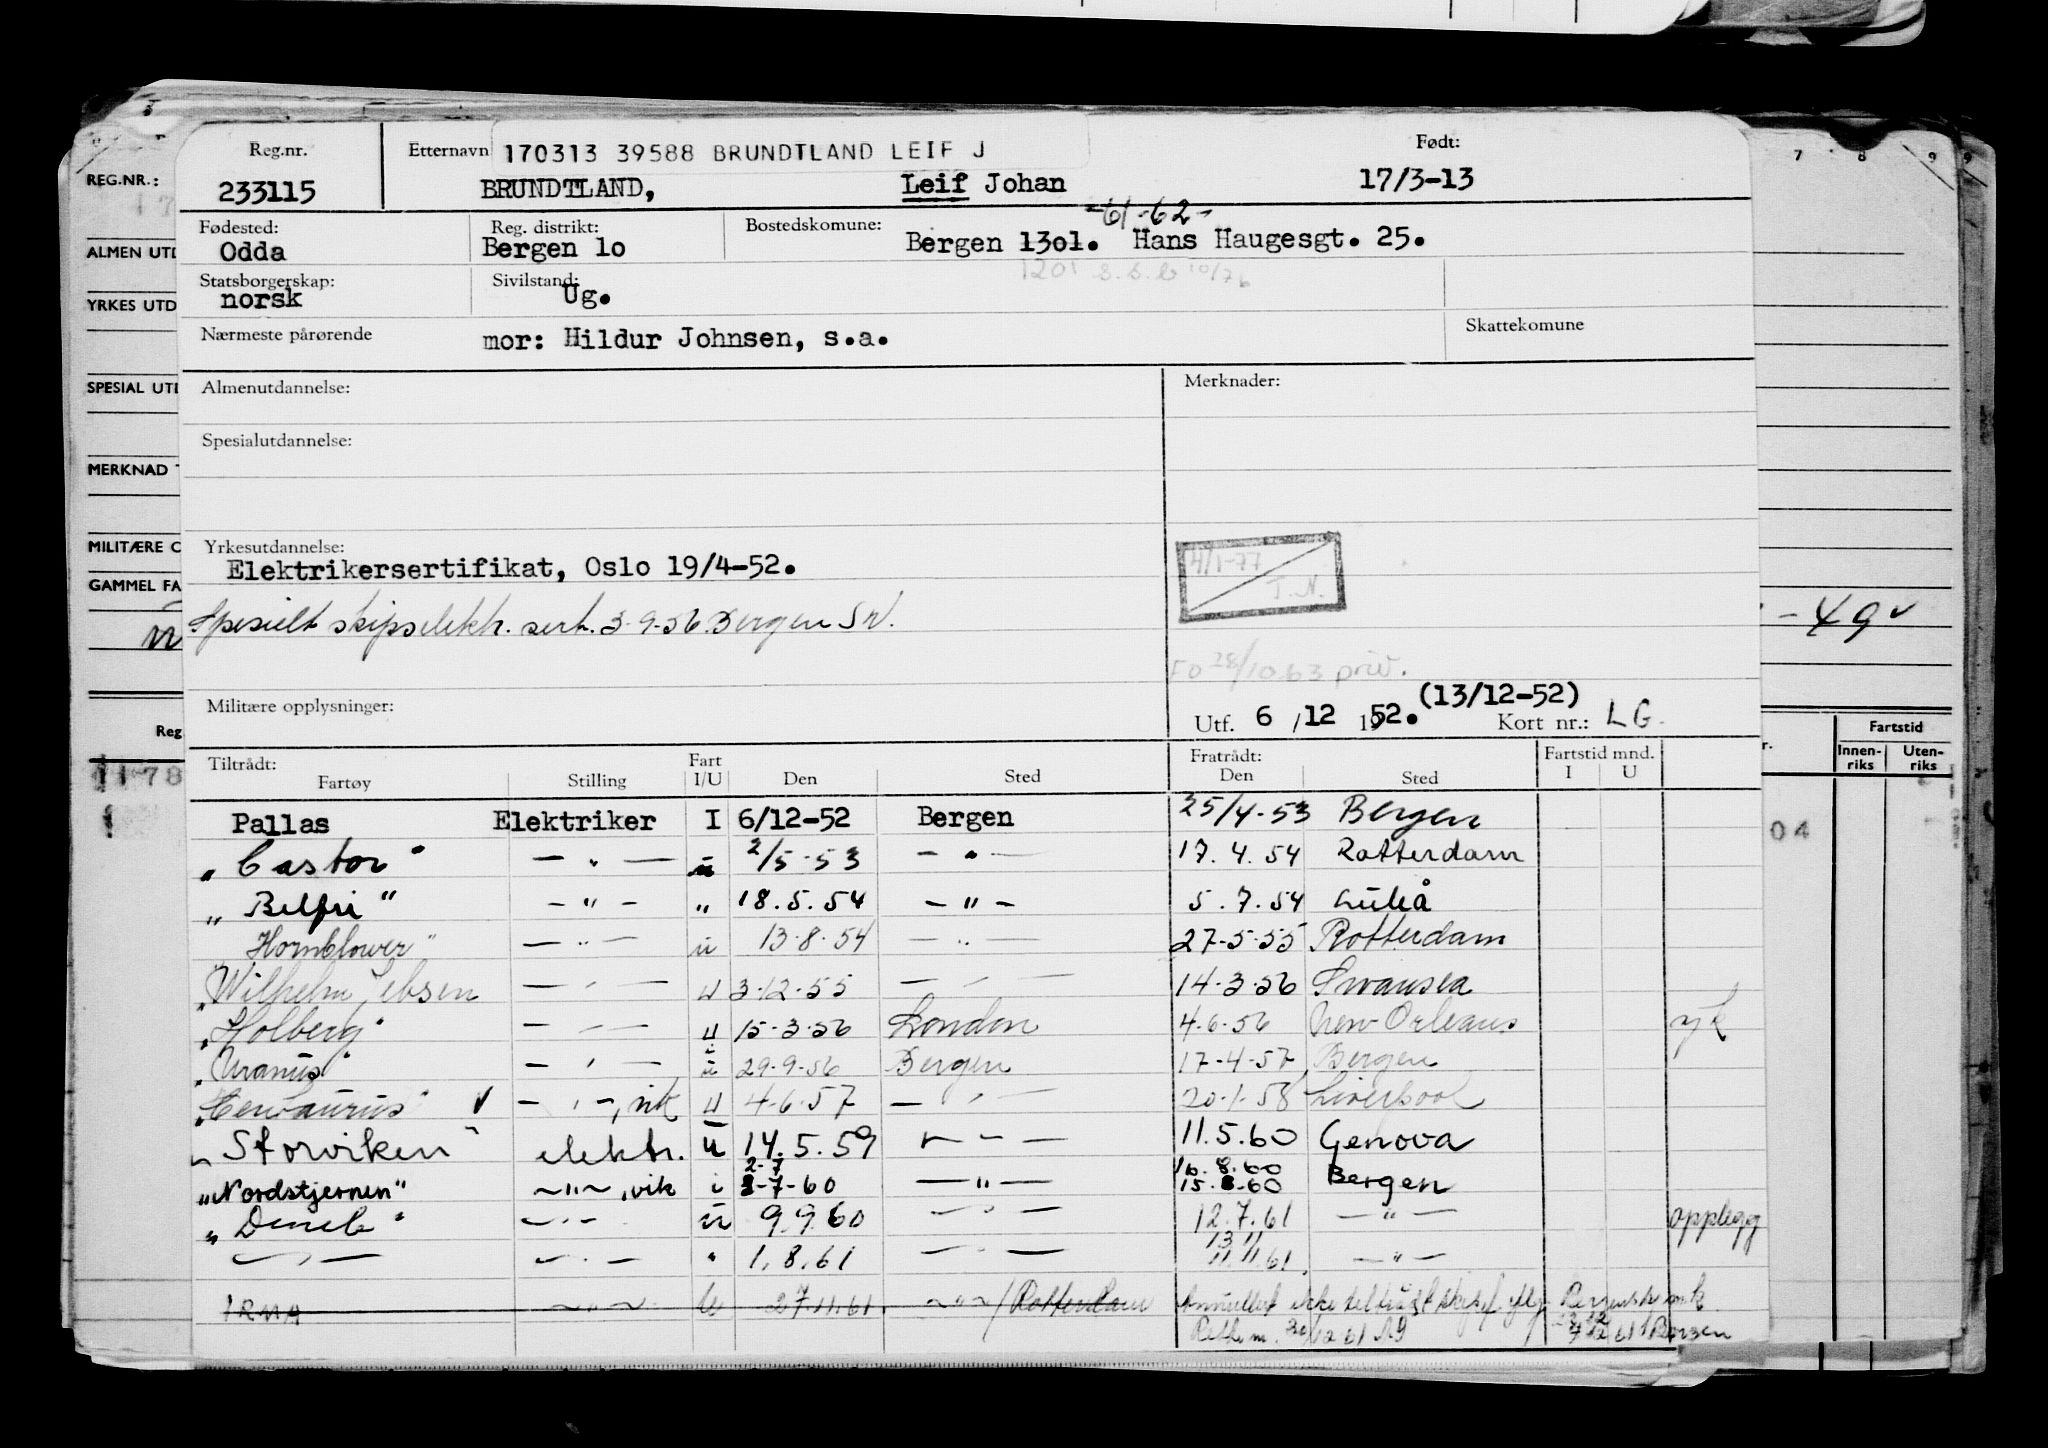 Reg.nr. Etternavn 170313 39588 BRUNDTLAND LEIF J Født:
233115 BRUNDTLAND, Leif Johan 17/3-13
-61-62-
Fødested: Reg. distrikt: Bostedskomune:
Odda Bergen lo Bergen 13o1. Hans Haugesgt. 25.
1201 s.s.b 10/76
Statsborgerskap: Sivilstand:
norsk Ug.
Nærmeste pårørende mor: Hildur Johnsen, s.a. Skattekomune
Almenutdannelse: Merknader:
Spesialutdannelse:
Yrkesutdannelse:
Elektrikersertifikat, Oslo 19/4-52.
4/1-77
T.N.
Spesielt skipselektr. sert. 3-9-56 Bergen Sv.
FO 28/10.63 priv.
Militære opplysninger:
(13/12-52)
Utf. 6 /12 1952. Kort nr.: LG.
Tiltrådt: Fart Fratrådt: Fartstid mnd.
Fartøy Stilling I/U Den Sted Den Sted I U
Pallas Elektriker I 6/12-52 Bergen 25/4-53 Bergen
"Castor" — " — u 2/5-53 — " — 17.4.54 Rotterdam
"Belfri" — " — " 18.5.54 — " — 5.7.54 Luleå
Hornblower" — " — u 13-8-54 — " — 27-5-55 Rotterdam
"Wilhelm Jebsen — " — u 3-12-55 — " — 14-3-56 Swansea
"Holberg" — " — u 15-3-56 London 4-6-56 New Orleans syk
"Uranus" — " — u 29-9-56 Bergen 17-4-57 Bergen
"Centaurus" √ — " —, vik u 4-6-57 — " — 20-1-58 Liverpool
"Storviken" elektr. u 14.5.59 — " — 11.5.60 Genova
2-7 16.8.60
"Nordstjernen" — " —, vik i 1-7-60 — " — 15.8.60 Bergen
"Deneb" — " — u 9.9.60 — " — 12.7.61 — " — opplegg
13 11
— " — — " — " 1.8.61 — " — 11.11.61. — " —
IRMA — " — u 27.11.61 — " — / Rotterdam Annullert ikke tiltrådt skipet iflg
REG.NR.:
ALMEN UTD
YRKES UTD
SPECIAL UTD
MERKNAD T
MILITÆRE O
GAMMEL FA
Reg
1178
7 8 9
- 49 √
Fartstid
Innen-riks Uten-riks
04